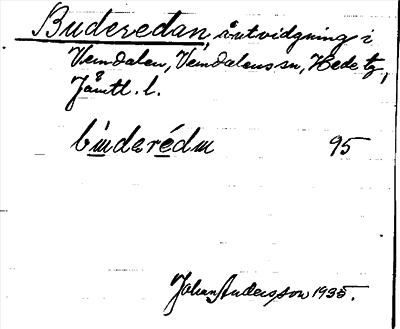 Buderedan, åutvidgning i
Vemdalen, Vemdalens sn, Hede tg,
Jämtl. l.
bu̲dəre̲´dɯ 95
Johan Andersson 1935.